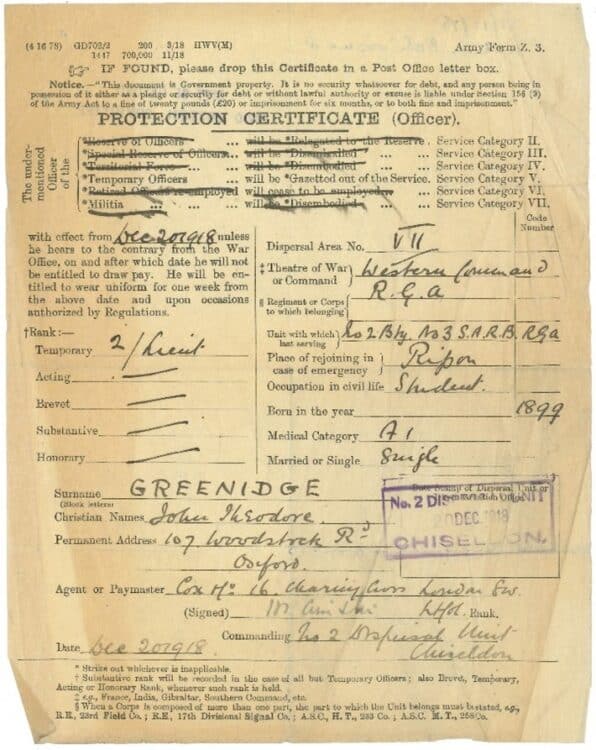 (4 16 78) GD703/2 200 3/18 HWV(M)
1447 700,000 11/18
Army Form Z. 3.
IF FOUND, please drop this Certificate in a Post Office letter box.
Notice.—"This document is Government property. It is no security whatsoever for debt, and any person being in
possession of it either as a pledge or security for debt or without lawful authority or excuse is liable under Section 156 (9)
of the Army Act to a fine of twenty pounds (£20) or imprisonment for six months, or to both fine and imprisonment."
PROTECTION CERTIFICATE (Officer).
The under-mentioned Officer of the
*Reserve of Officers ... will be *Relegated to the Reserve. Service Category II.
*Special Reserve of Officers... will be *Disembodied ... Service Category III.
*Territorial Force ... will be *Disembodied ... Service Category IV.
*Temporary Officers ... will be *Gazetted out of the Service. Service Category V.
*Retired Officers re-employed will cease to be employed... Service Category VI.
*Militia ... will be *Disembodied... Service Category VII.
with effect from Dec 20 1918 unless
he hears to the contrary from the War
Office, on and after which date he will not
be entitled to draw pay. He will be en-
titled to wear uniform for one week from
the above date and upon occasions
authorized by Regulations.
†Rank:—
Temporary 2/Lieut
Acting
Brevet
Substantive
Honorary
Code Number
Dispersal Area No. VII
‡ Theatre of War or Command } Western Command
§ Regiment or Corps to which belonging } R.G.A
Unit with which last serving } No 2 Bty. No 3 S.A.R.B. RGA
Place of rejoining in case of emergency } Ripon
Occupation in civil life Student.
Born in the year 1899
Medical Category A1
Married or Single Single
Surname GREENIDGE
(Block letters)
Date Stamp of Dispersal Unit or
No. 2 DISPERSAL UNIT
20 DEC. 1918
CHISELDON.
Christian Names John Theodore
Permanent Address 107 Woodstock Rd
Oxford.
Agent or Paymaster Cox & Co 16. Charing Cross London SW.
(Signed) Rank.
Commanding No 2 Dispersal Unit
Chiseldon
Date Dec 20 1918.
* Strike out whichever is inapplicable.
† Substantive rank will be recorded in the case of all but Temporary Officers; also Brevet, Temporary,
Acting or Honorary Rank, whenever such rank is held.
‡ e.g., France, India, Gibraltar, Southern Command, etc.
§ When a Corps is composed of more than one part, the part to which the Unit belongs must be stated, e.g.,
R.E., 23rd Field Co.; R.E., 17th Divisional Signal Co.; A.S.C., H.T., 233 Co.; A.S.C. M.T., 258 Co.